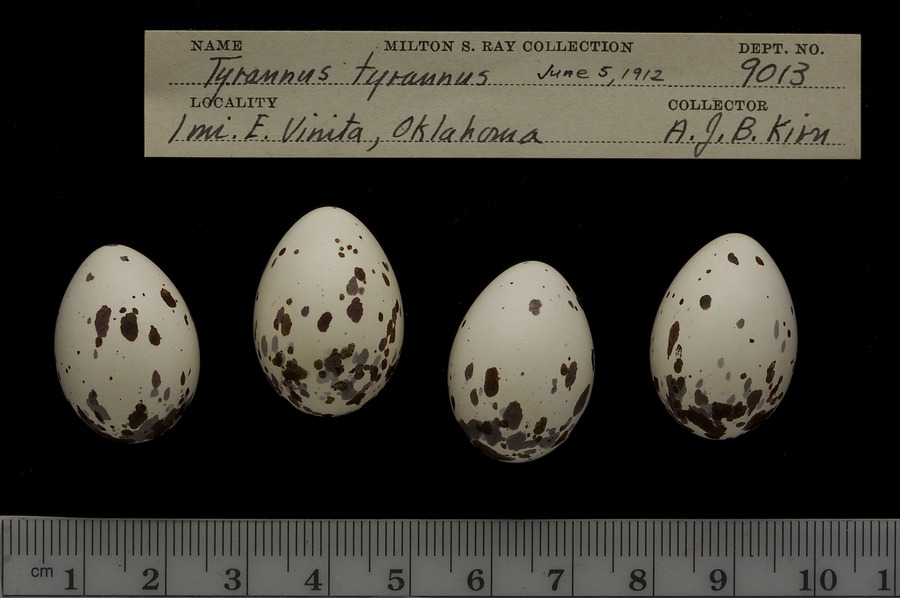 NAME MILTON S. RAY COLLECTION DEPT. NO.
Tyrannus tyrannus June 5, 1912 9013
LOCALITY COLLECTOR
1 mi. E. Vinita, Oklahoma A. J. B. Kirn
cm 1 2 3 4 5 6 7 8 9 10 1